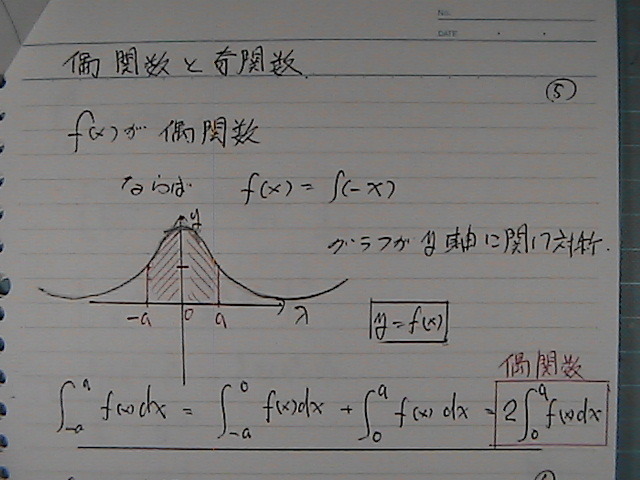 No.
DATE
偶関数と奇関数
⑤
f(x)が 偶関数
ならば f(x) = f(-x)
グラフが y 軸に関して対称.
y
-a 0 a x
y = f(x)
偶関数
∫_{-a}^{a} f(x)dx = ∫_{-a}^{0} f(x)dx + ∫_{0}^{a} f(x)dx = 2∫_{0}^{a} f(x)dx